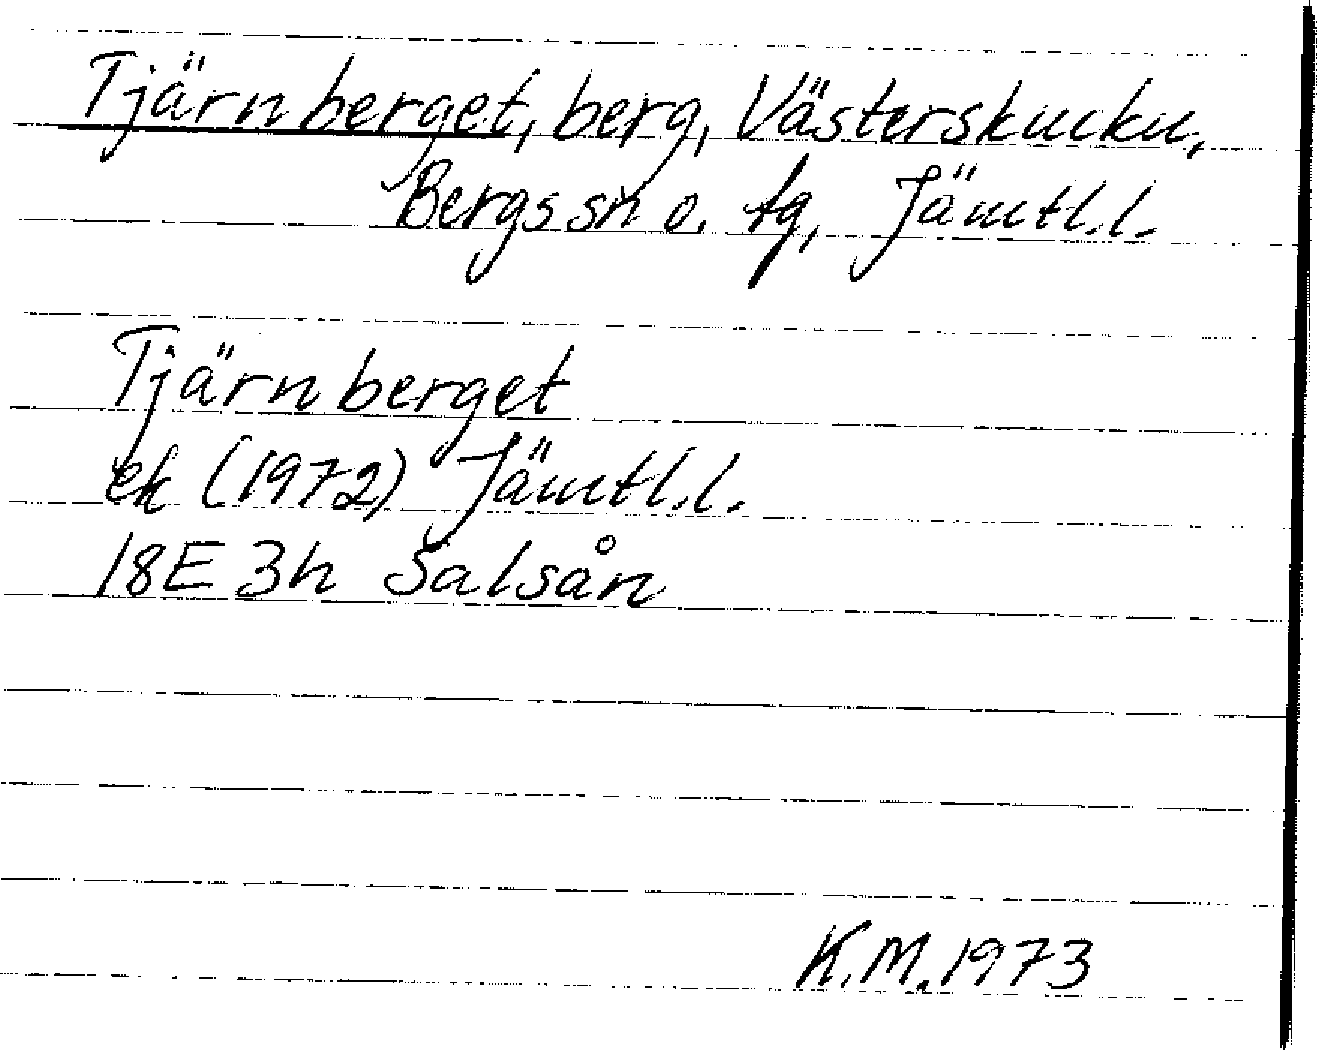 Tjärnberget, berg, Västerskucku,
Bergs sn o. tg, Jämtl.l.
Tjärnberget
ek (1972) Jämtl.l.
18E 3h Salsån
K.M. 1973